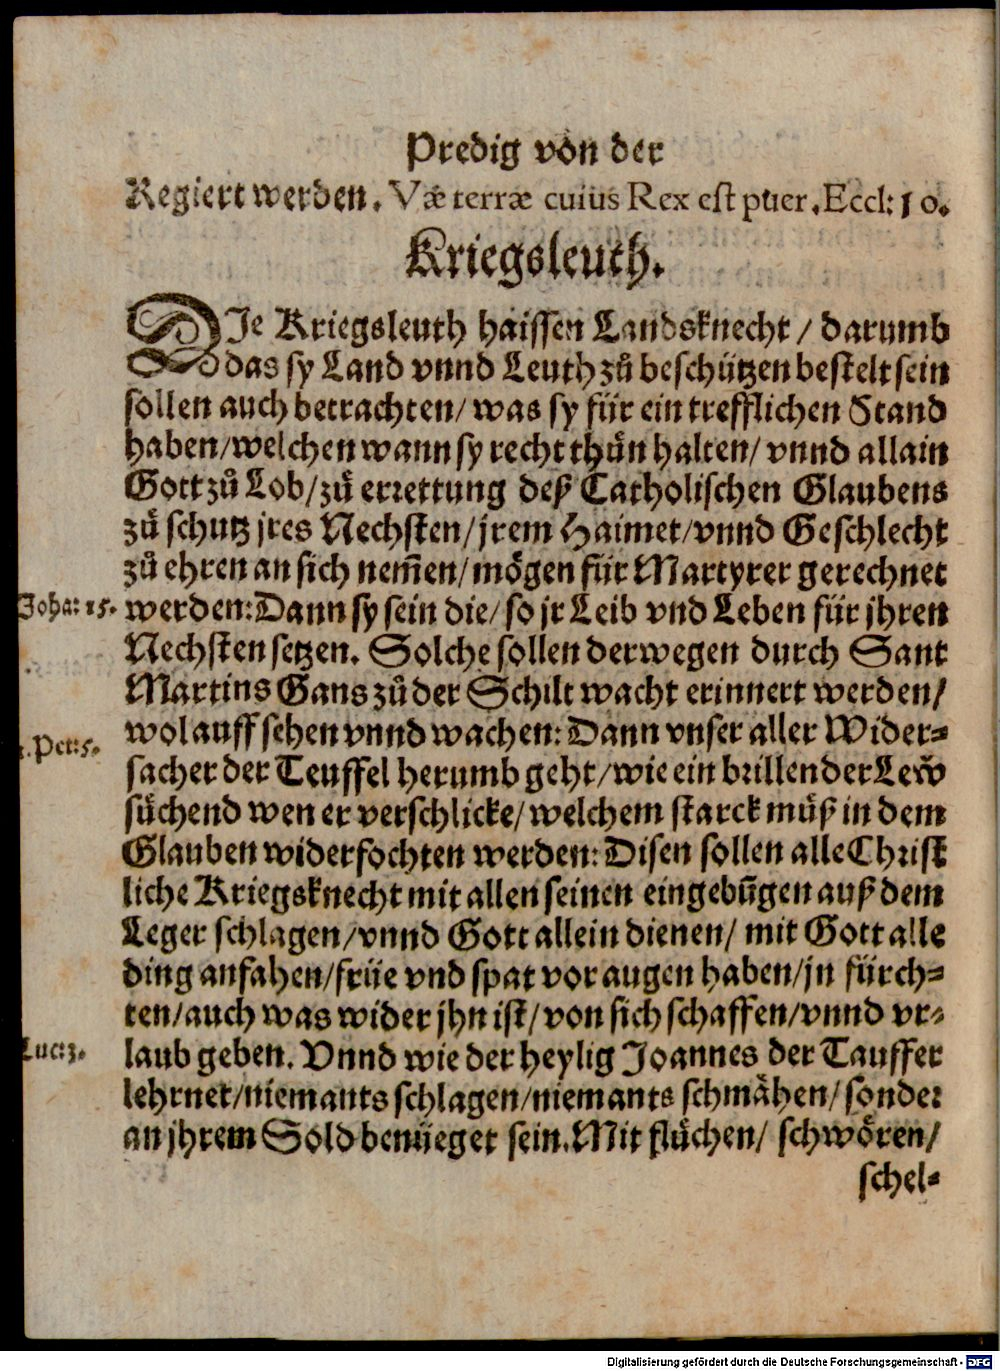 Predig von der
Regiert werden. Væ terræ cuius Rex est puer. Eccl: 10.
Kriegsleuth.
DIe Kriegsleuth haissen Landsknecht / darumb
das sy Land vnnd Leuth zů beschützen bestelt sein
sollen auch betrachten/ was sy für ein trefflichen Stand
haben/welchen wann sy recht thůn halten/ vnnd allain
Gott zů Lob/zů errettung deß Catholischen Glaubens
zů schutz jres Nechsten/jrem Haimet/vnnd Geschlecht
zů ehren an sich nem̃en/mögen für Martyrer gerechnet
Joha: 15. werden: Dann sy sein die/ so jr Leib vnd Leben für jhren
Nechsten setzen. Solche sollen derwegen durch Sant
Martins Gans zů der Schilt wacht erinnert werden/
wol auff sehen vnnd wachen: Dann vnser aller Wider-
.Pet:5. sacher der Teuffel herumb geht/wie ein brillender Lew
sůchend wen er verschlicke/ welchem starck můß in dem
Glauben widerfochten werden: Disen sollen alle Christ
liche Kriegsknecht mit allen seinen eingebũgen auß dem
Leger schlagen/vnnd Gott allein dienen/ mit Gott alle
ding anfahen/früe vnd spat vor augen haben/jn fürch-
ten/auch was wider jhn ist/ von sich schaffen/vnnd vr-
Luc:3. laub geben. Vnnd wie der heylig Joannes der Tauffer
lehrnet/niemants schlagen/niemants schmähen/ sonder
an jhrem Sold benüeget sein. Mit flůchen/ schwören/
schel-
Digitalisierung gefördert durch die Deutsche Forschungsgemeinschaft - DFG